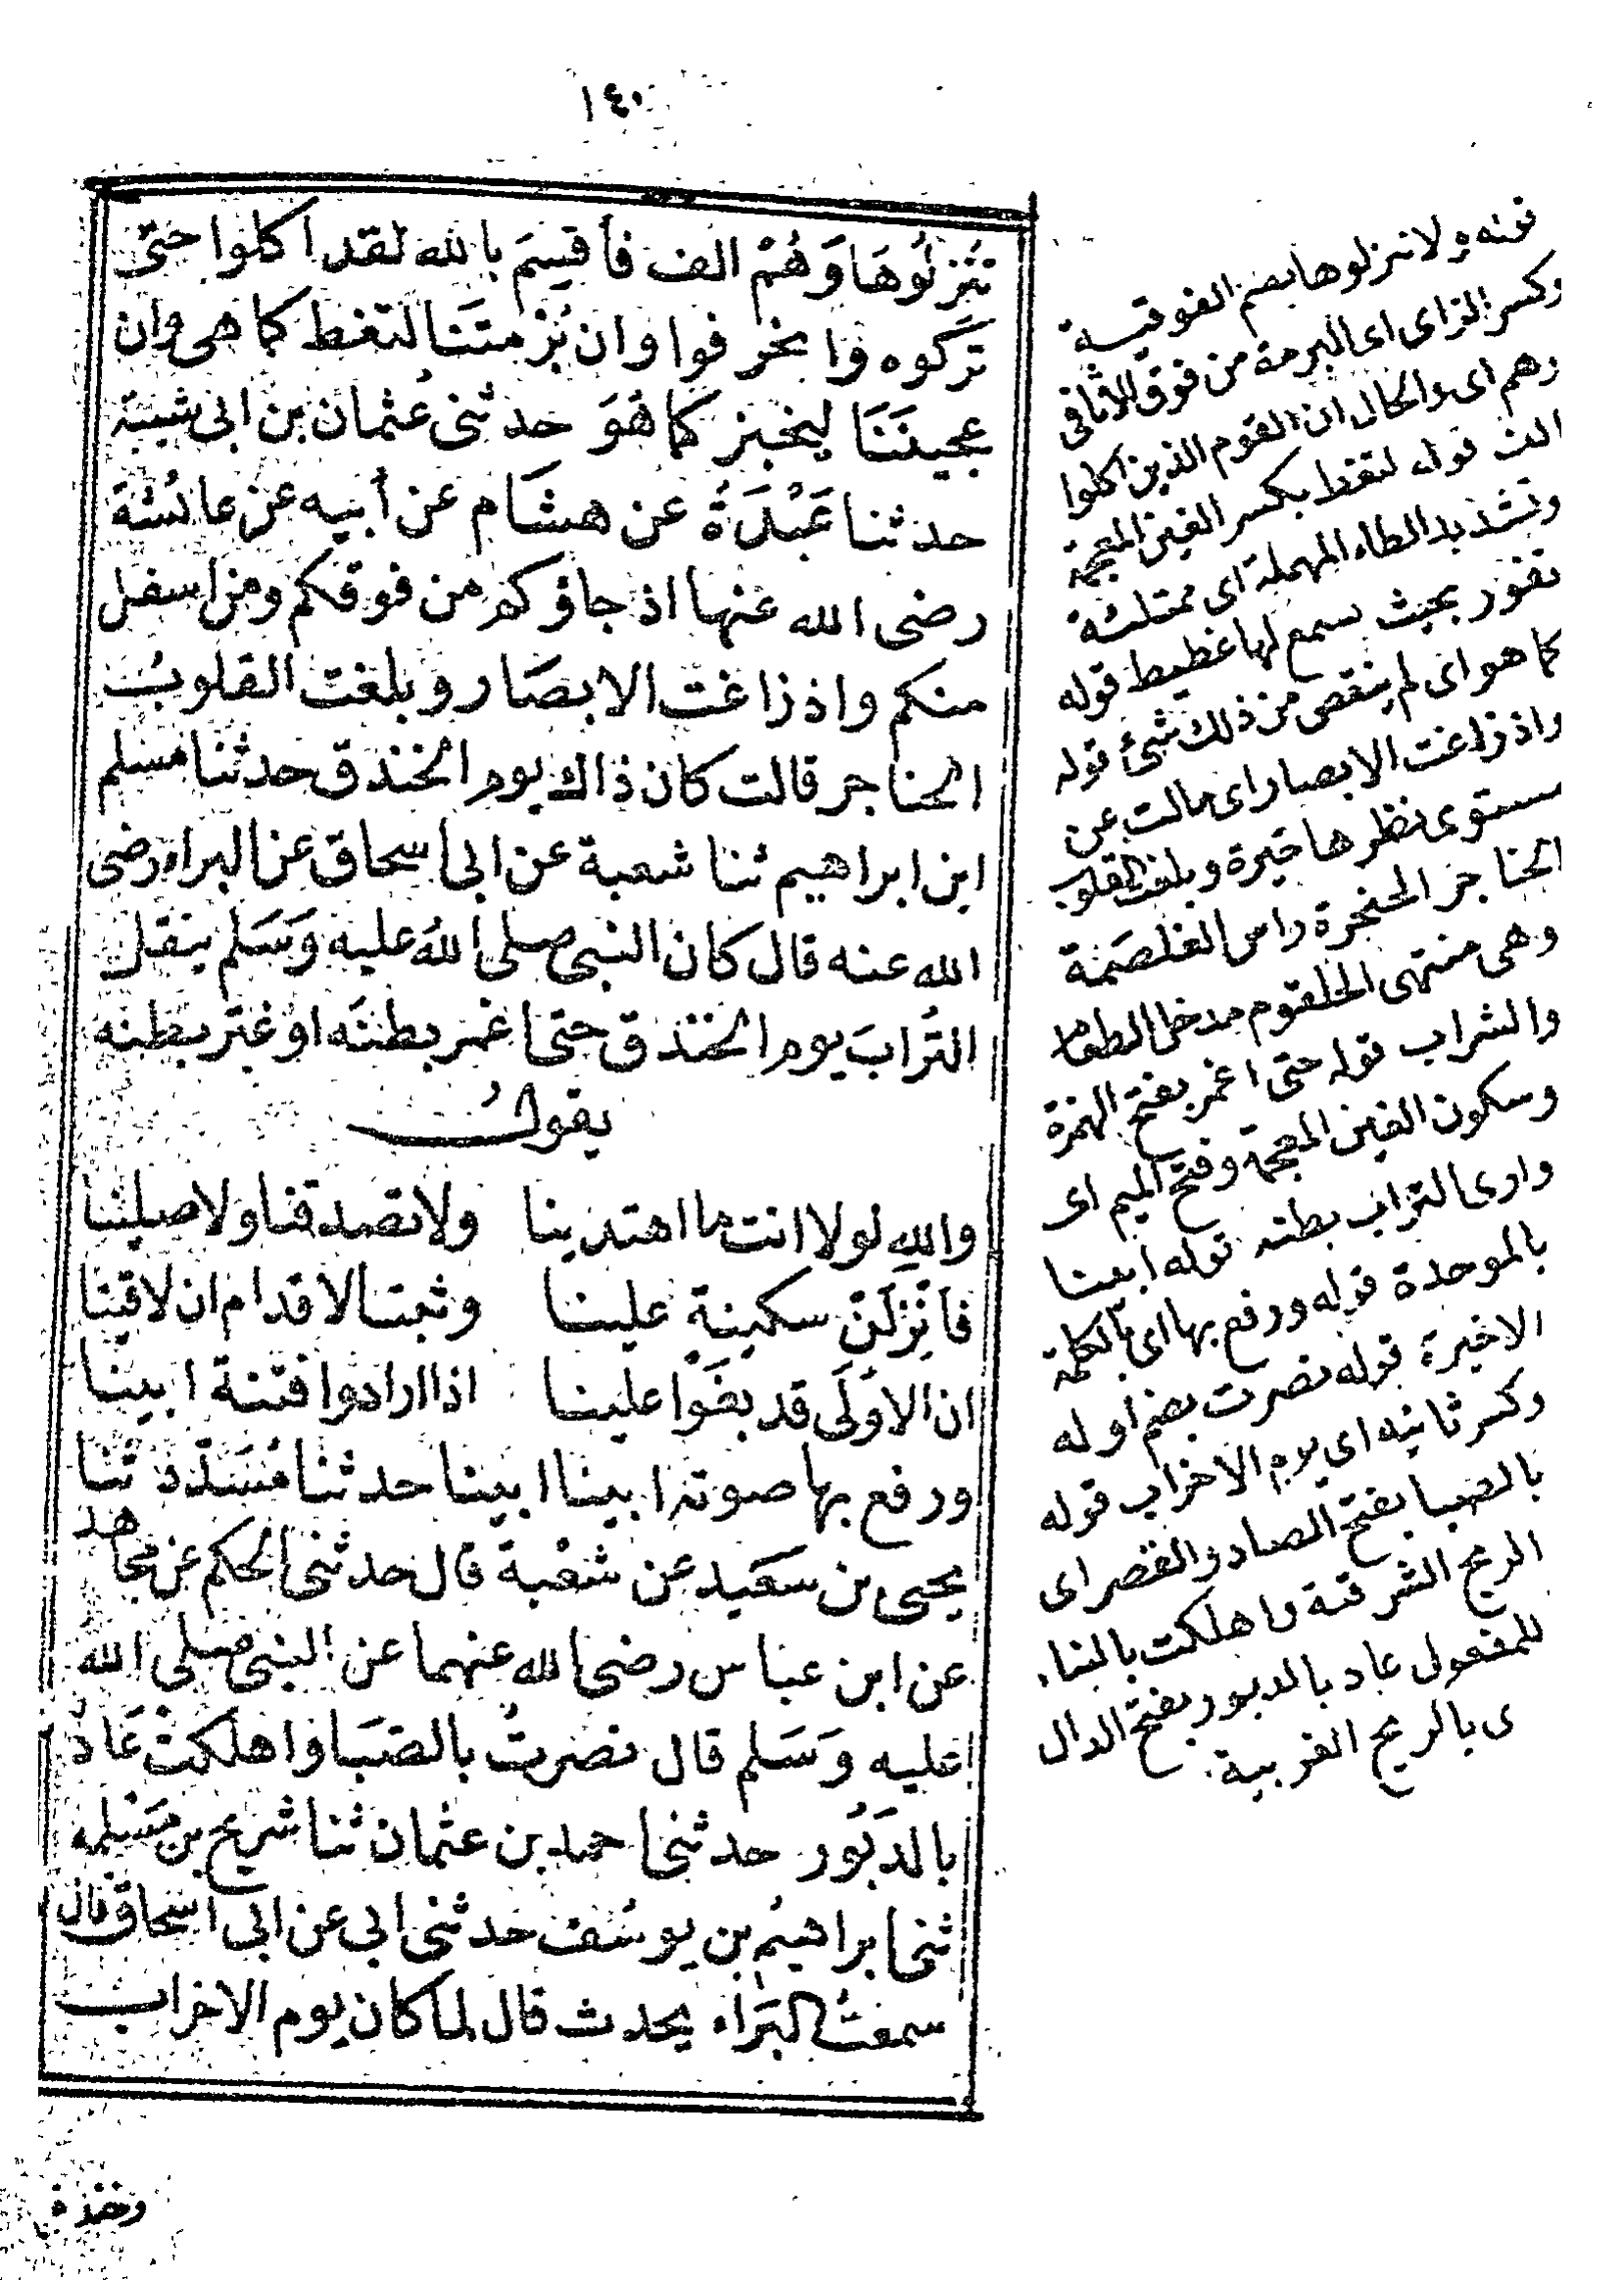 ١٤٠
تُنْزِلُوهَا وَهُمْ الف فأقسِمَ بالله لقد اكلوا حتى
تركوه وانحرفوا وان بُرْمتَنا لتغط كما هى وان
عجينَنَا ليخبز كما هُوَ حدثنى عُثمان بن ابى شيبة
حدثنا عَبْدَةُ عن هشَام عن أبيه عن عائشة
رضى الله عنها اذ جاؤكم من فوقكم ومن اسفل
منكم واذ زاغت الابصَار وبلغت القلوبُ
الحناجر قالت كان ذاك يوم الخندق حدثنا مسلم
ابن ابراهيم ثنا شعبة عن ابى اسحاق عن البراء رضى
الله عنه قال كان النبى صلى اللهُ عليه وَسَلم ينقل
التُرابَ يوم الخندق حتى اغمر بطنَه او غبّر بطنه
يقولُ
واللهِ لولا انت ما اهتدينا ولا تصدقنا ولا صلينا
فأنزلَنْ سكينة علينا وثبت الاقدام ان لاقينا
ان الاولَى قد بغَوْا علينا اذا ارادوا فتنة ابينا
ورفع بها صوته ابينا ابينا حدثنا مُسَدّد ثنا
يحيى بن سَعَيد عن شعْبة قال حدثنى الحكم عن مجاهد
عن ابن عباس رضى الله عنهما عن النبى صلى الله
عليه وَسَلم قال نصرتُ بالصَبا واهلكتْ عَادٌ
بالدَبُور حدثنى احمد بن عثمان ثنا شريح بن مَسْلمه
ثنى ابراهيمُ بن يوسُف حدثنى ابى عن ابى اسحاق قال
سمعتُ البَرَاء يحدث قال لما كان يوم الاحزاب
وخندق
ولا تنزلوها بضم الفوقية
وكسر الزاى اى البرمة من فوق الاثافى
وهم اى والحال ان القوم الذين اكلوا
الف قوله لتغط بكسر الغين المعجمة
وتشديد الطاء المهملة اى ممتلئة
تفور بحيث يسمع لها غطيط قوله
كما هو اى لم ينقص من ذلك شئ قوله
واذ زاغت الابصار اى مالت عن
مستوى نظرها حيرة وبلغت القلوب
الحناجر الحنجرة راس الغلصَمة
وهى منتهى الحلقوم مدخل الطعام
والشراب قوله حتى اغمر بفتح الهمزة
وسكون الغين المعجمة وفتح الميم اى
وارى التراب بطنه قوله ابينا
بالموحدة قوله ورفع بها اى بالكلمة
الاخيرة قوله نصرت بضم اوله
وكسر ثانيه اى يوم الاحزاب قوله
بالصبا بفتح الصاد والقصر اى
الريح الشرقية واهلكت بالبناء
للمفعول عاد بالدبور بفتح الدال
ى بالريح الغربية